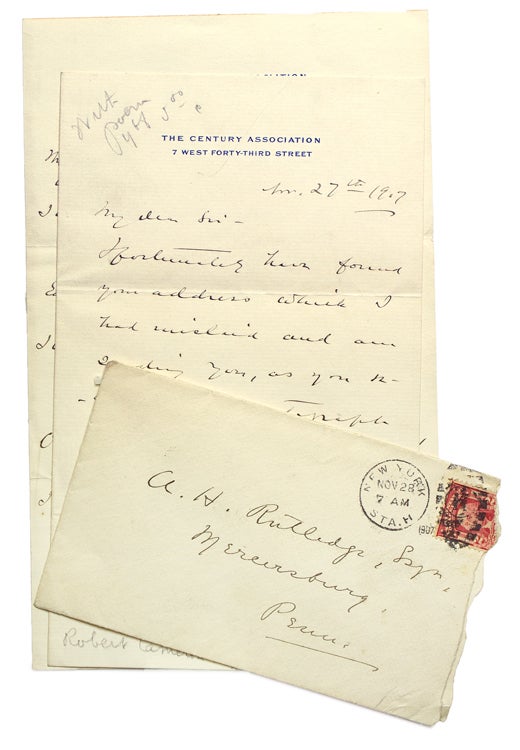 With
poem
THE CENTURY ASSOCIATION
7 WEST FORTY-THIRD STREET
Nov. 27th 1907
My dear Sir -
I fortunately have found
your address which I
had mislaid and am
sending you, as you re-
NEW YORK
NOV 28
7 AM
STA. H
1907
A. H. Rutledge, Esqr,
Mercersburg,
Penn.
Robert